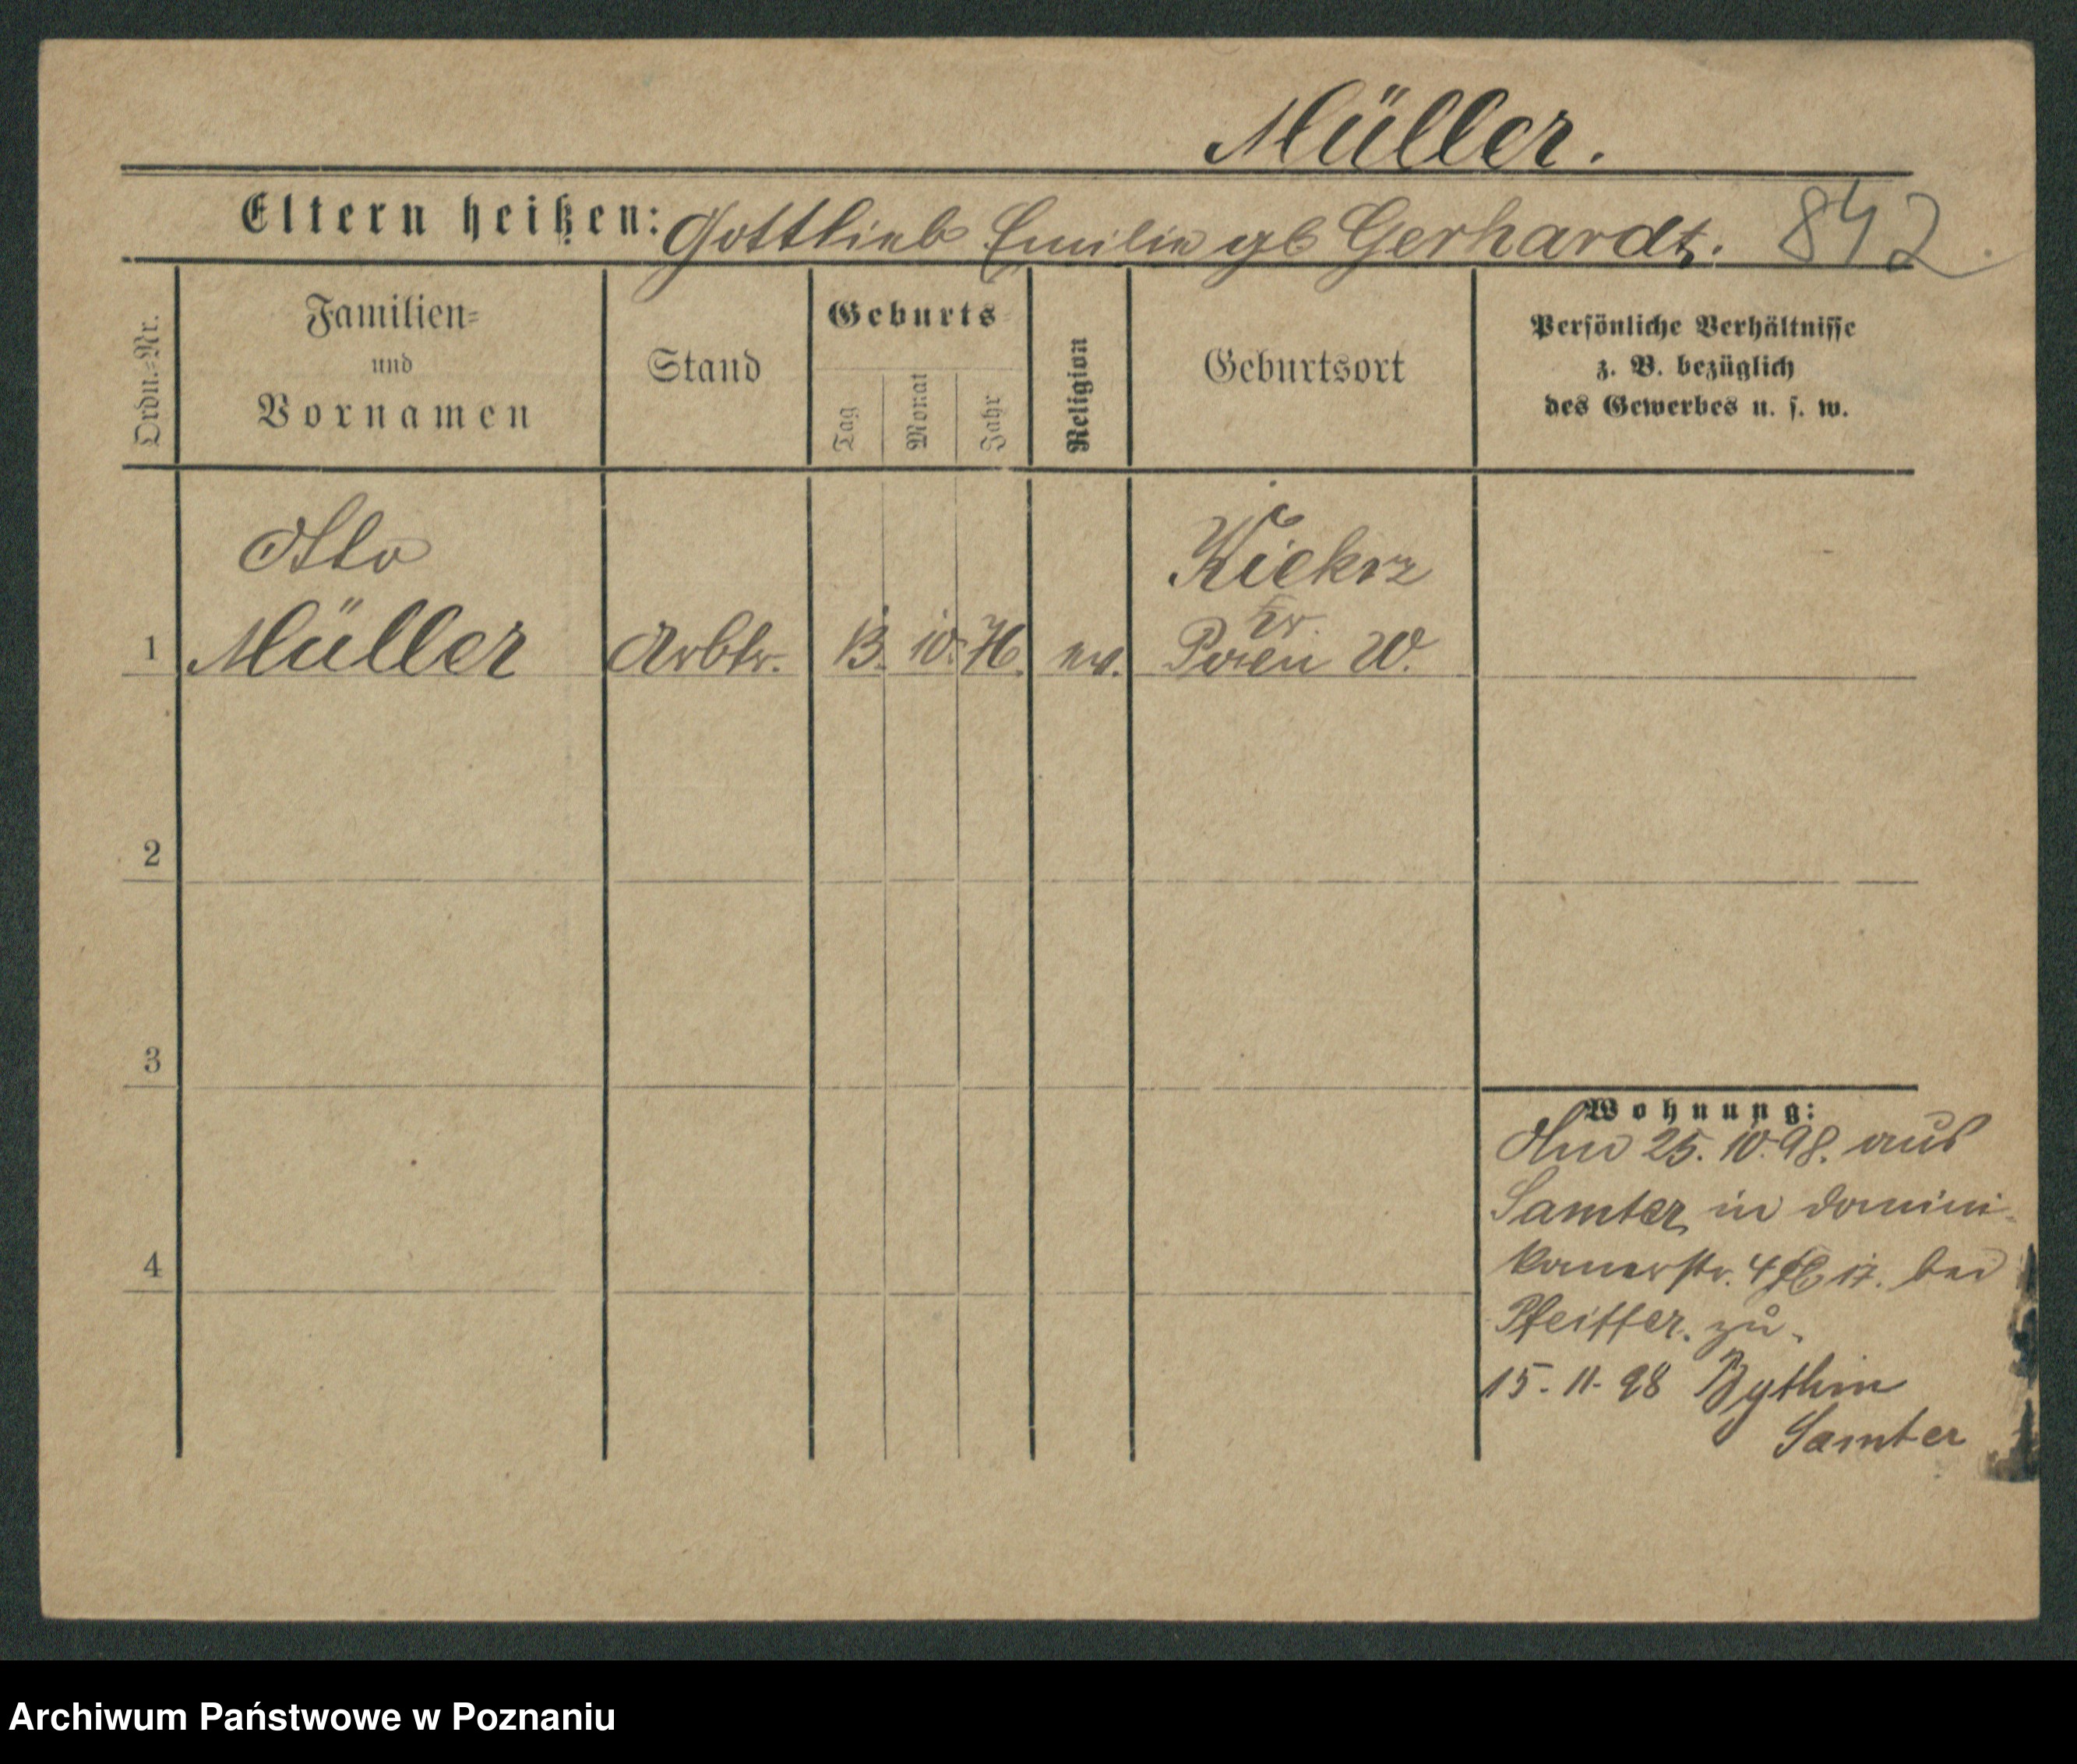 Müller.
Eltern heißen: Gottlieb Emilie gb Gerhardt. 842
Ordn.-Nr.
Familien-
und
Vornamen
Stand
Geburts
Tag
Monat
Jahr
Religion
Geburtsort
Persönliche Verhältnisse
z. B. bezüglich
des Gewerbes u. s. w.
Otto
Kiekrz
Kr.
1 Müller Arbtr. 13. 10. 76. ev. Posen W.
2
3
4
Wohnung:
Am 25. 10. 98. aus
Samter in Domini-
kanerstr. 4 bei
Pfeiffer. zu.
15. 11. 98 Bythin
Samter
Archiwum Państwowe w Poznaniu